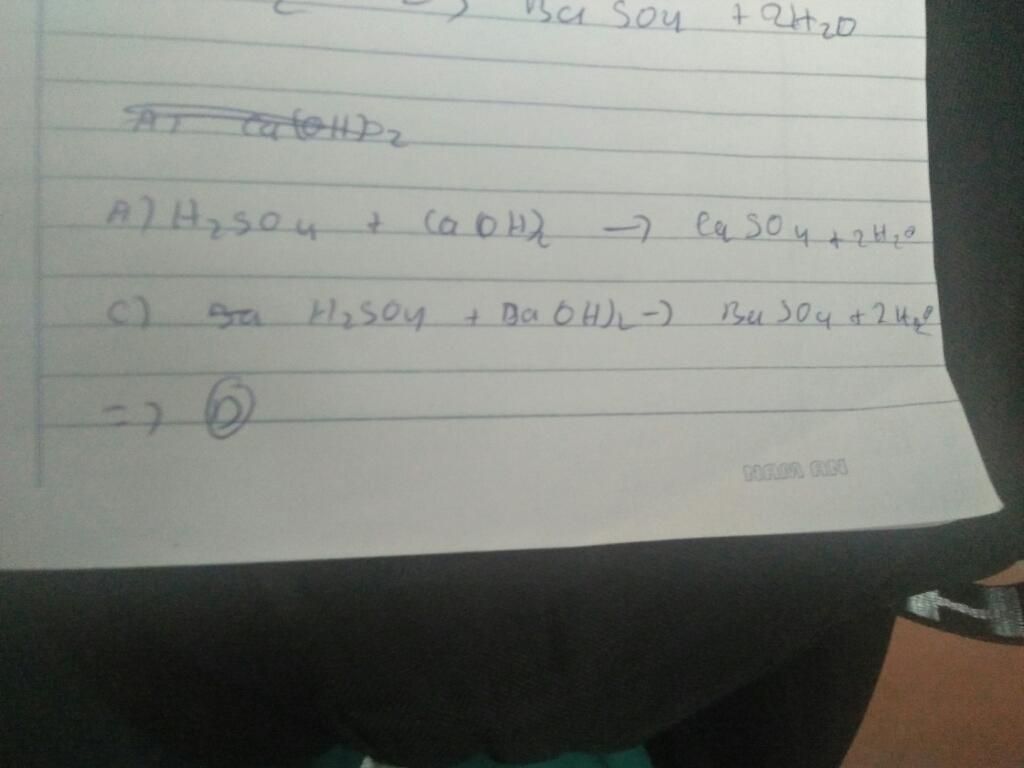 BaSO4 + 2H2O
A) Ca(OH)2
A) H2SO4 + Ca OH)2 → CaSO4 + 2H2O
C) Ba H2SO4 + Ba OH)2 → BaSO4 + 2H2O
=> D
NAM AN